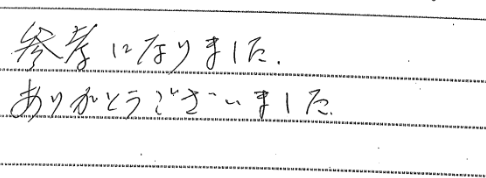 参考になりました.
ありがとうございました.